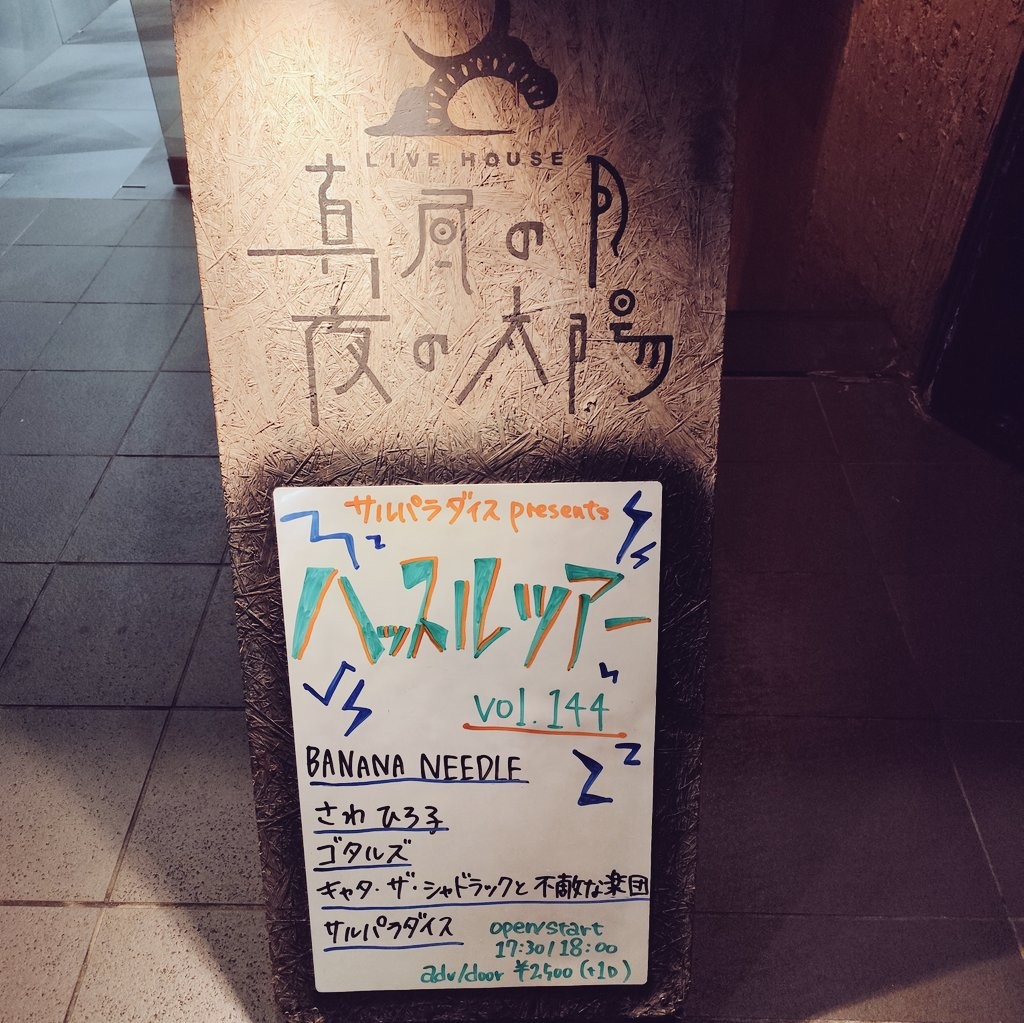 LIVE HOUSE
真昼の月
夜の太陽
サルパラダイス presents
ハッスルツアー
vol.144
BANANA NEEDLE
さわひろ子
ゴタルズ
キャタ・ザ・シャドラックと不敵な楽団
サルパラダイス
open/start
17:30/18:00
adv/door ¥2500(+1D)